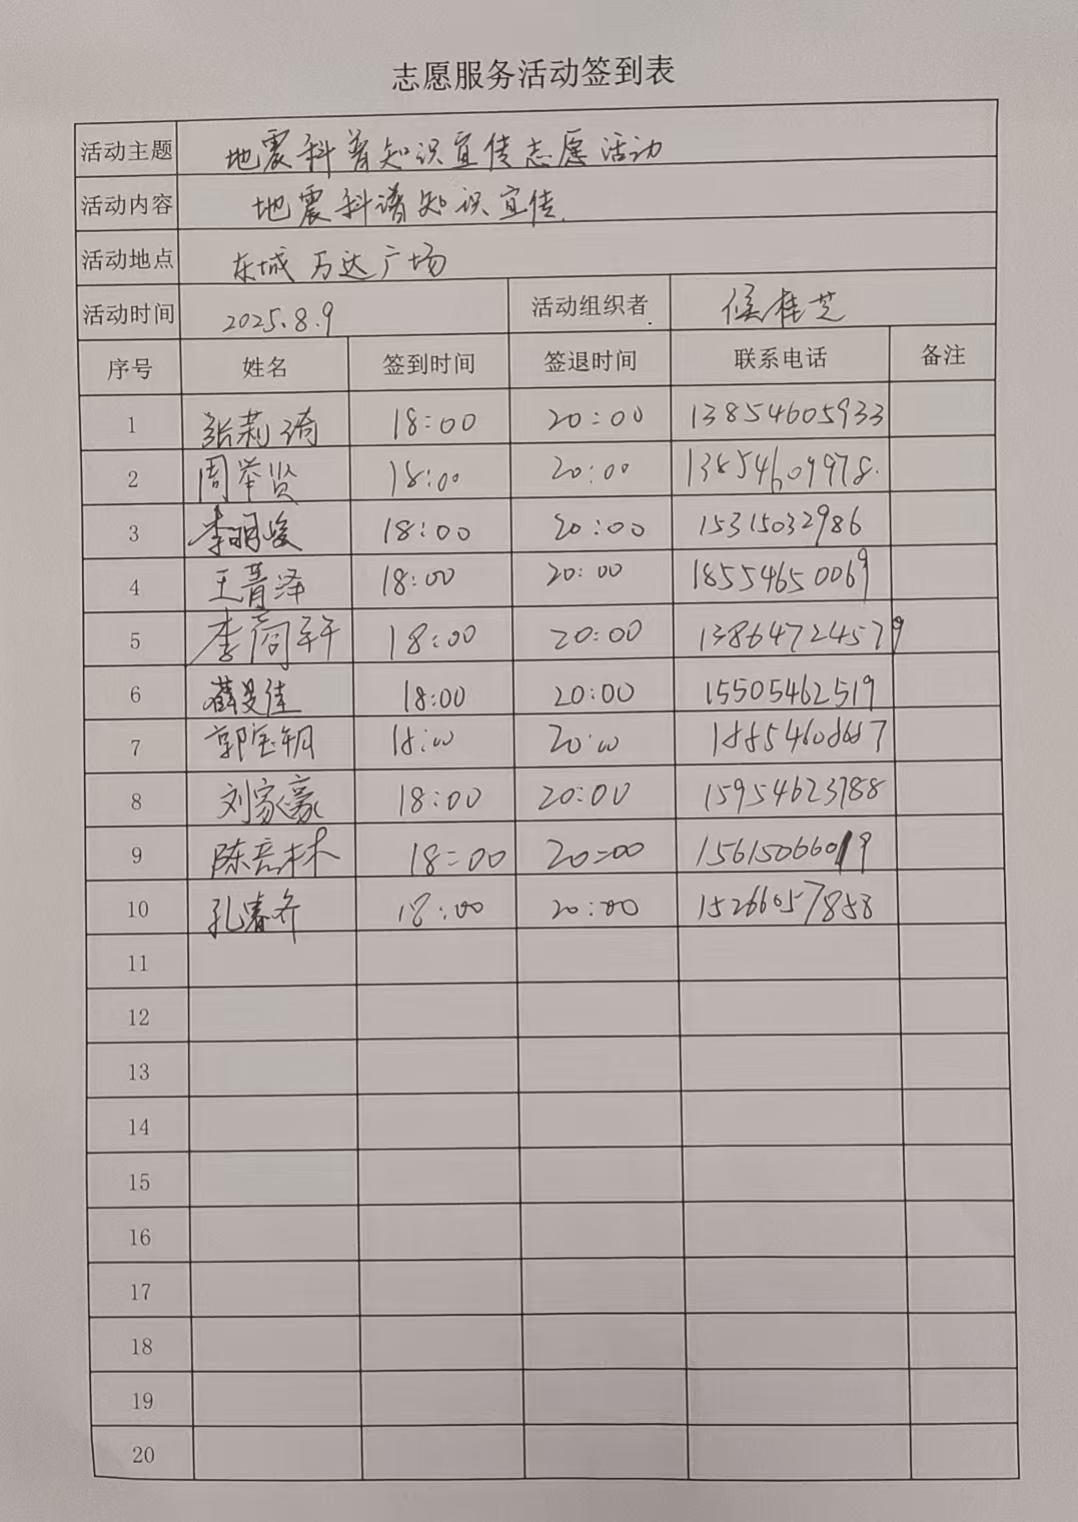 志愿服务活动签到表
活动主题 地震科普知识宣传志愿活动
活动内容 地震科谱知识宣传.
活动地点 东城万达广场
活动时间 2025.8.9 活动组织者 侯桂芝
序号 姓名 签到时间 签退时间 联系电话 备注
1 张莉琦 18:00 20:00 13854605933
2 周举贤 18:00 20:00 13854609978.
3 李明峻 18:00 20:00 15315032986
4 王晋泽 18:00 20:00 18554650069
5 李 18:00 20:00 13864724579
6 佳 18:00 20:00 15505462519
7 郭宝钥 18:00 20:00
8 刘家豪 18:00 20:00 15954623788
9 陈亮林 18:00 20:00 15615066019
10 孔春齐 18:00 20:00 15266057858
11
12
13
14
15
16
17
18
19
20